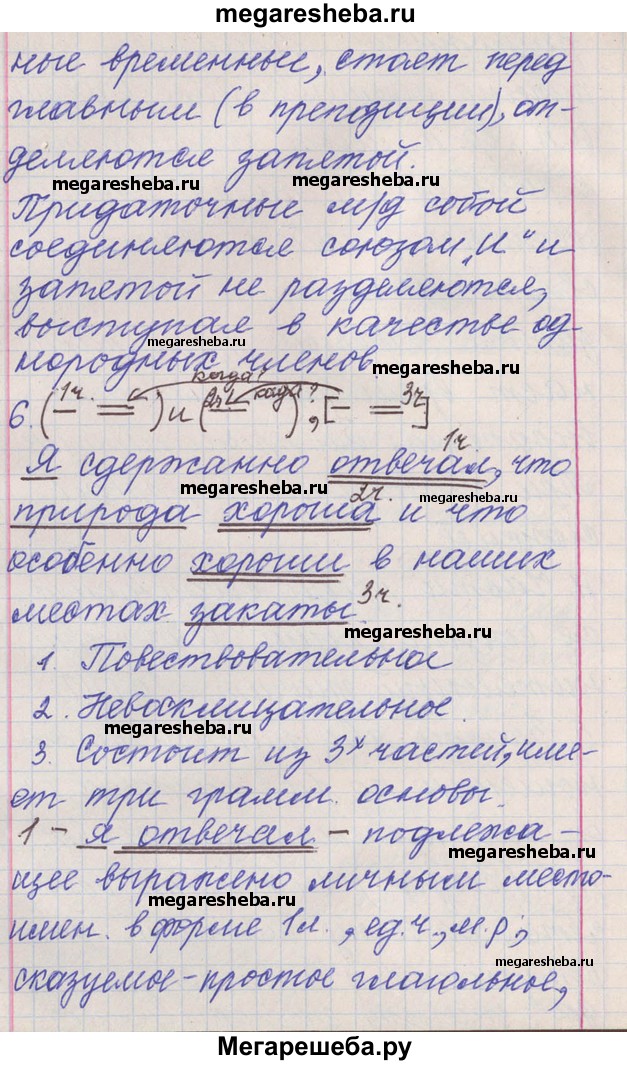 megaresheba.ru
ные временные, стоят перед
главным (в преподиции), от-
деляются запятой.
megaresheba.ru megaresheba.ru
Придаточные м/д собой
соединяются союзом „и“ и
запятой не разделяются,
выступая в качестве од-
megaresheba.ru
нородных членов.
megaresheba.ru
когда?
6. (1ч. – =) и (2ч. – = когда?), [– = 3ч]
Я сдержанно отвечал, 1ч. что
megaresheba.ru megaresheba.ru
природа хороша 2ч. и что
особенно хороши в наших
местах закаты. 3ч.
megaresheba.ru
1. Повествовательное
2. Невосклицательное.
megaresheba.ru
3. Состоит из 3х частей, име-
ет три грамм. основы.
1 – я отвечал – подлежа-
megaresheba.ru
щее выражено личным место-
имен. в форме 1л., ед.ч., м.р.,
megaresheba.ru
сказуемое – простое глагольное,
Мегарешеба.ру